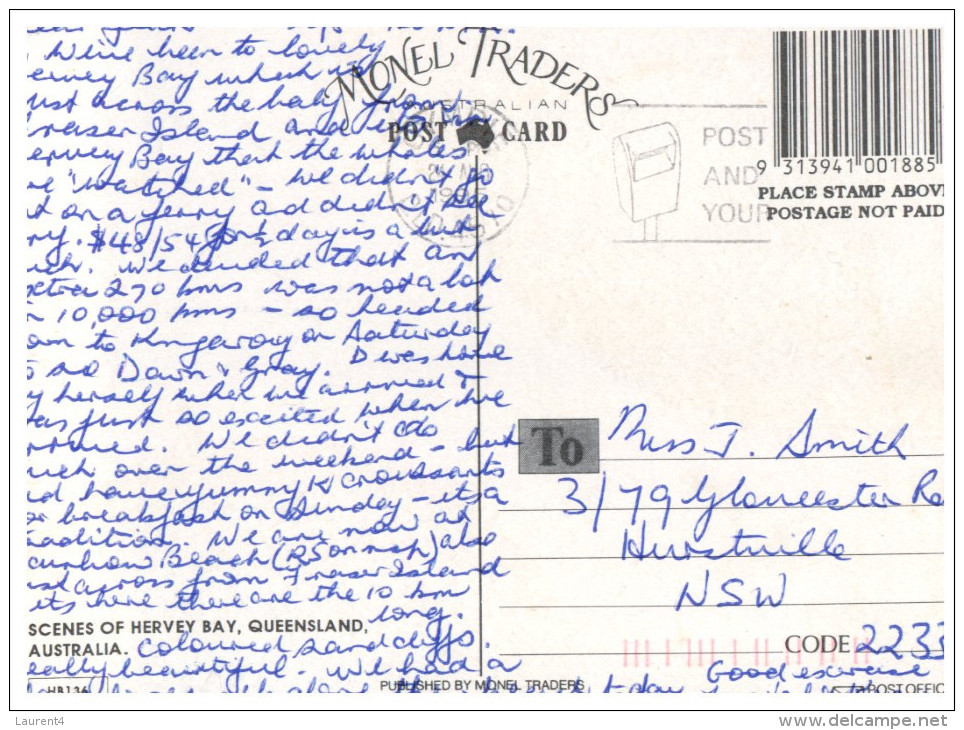 We've been to lovely
ervey Bay which is
ust across the bay from
raser Island and it's in
ervey Bay that the whales
re "watched" - We didn't go
ut on a ferry and didn't see
ny. $48/54 for ½ day is a bit
uch. We decided that an
xtra 270 kms was not a lot
n 10,000 kms - so headed
own to Kingaroy on Saturday
o see Dawn & Gray. D was home
y herself when we arrived &
as just so excited when we
rrived. We didn't do
uch over the weekend - but
ad have yummy K croissants
or breakfast on Sunday - its a
radition. We are now at
ainbow Beach (R5 on map) also
ust across from Fraser Island
its here there are the 10 km
long.
coloured sand cliffs.
eally beautiful. We had a
MONEL TRADERS
AUSTRALIAN
POST CARD
POST
AND
YOUR
9 313941 001885
PLACE STAMP ABOVE
POSTAGE NOT PAID
To
Miss J. Smith
3/79 Gloucester Ro
Hurstville
NSW
CODE 2233
Good exercise
SCENES OF HERVEY BAY, QUEENSLAND,
AUSTRALIA.
HB136
PUBLISHED BY MONEL TRADERS
POSTOFFIC
Laurent4